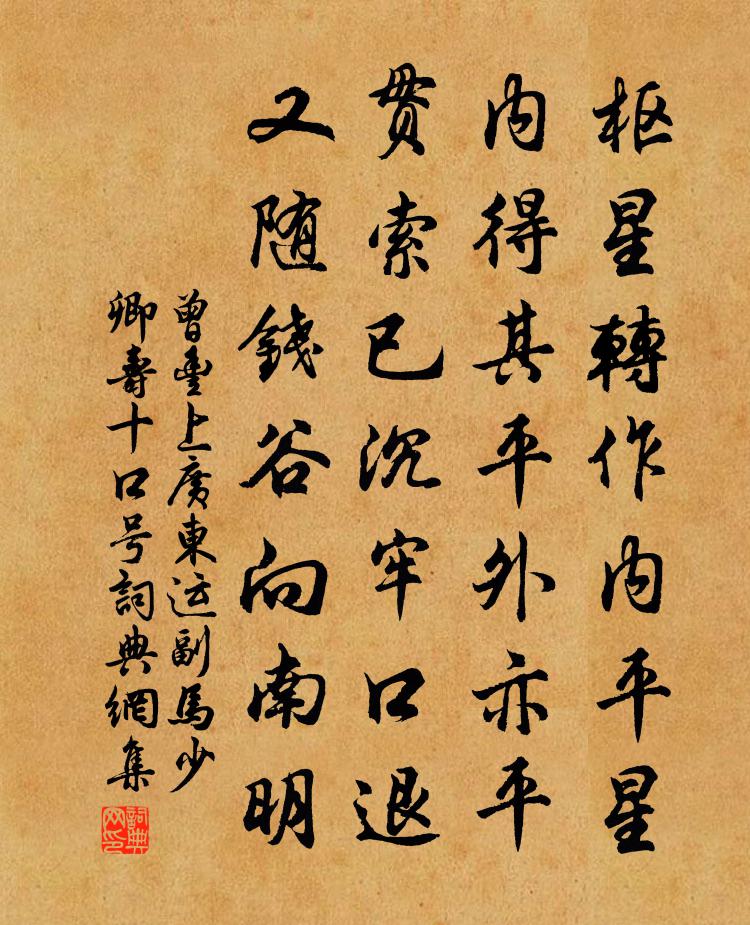 枢星轉作内平星
内得其平外亦平
贯索已沉牢口退
又随錢谷向南明
曾豊上廣東运副馬少
卿壽十口号詞典網集
詞典
网印